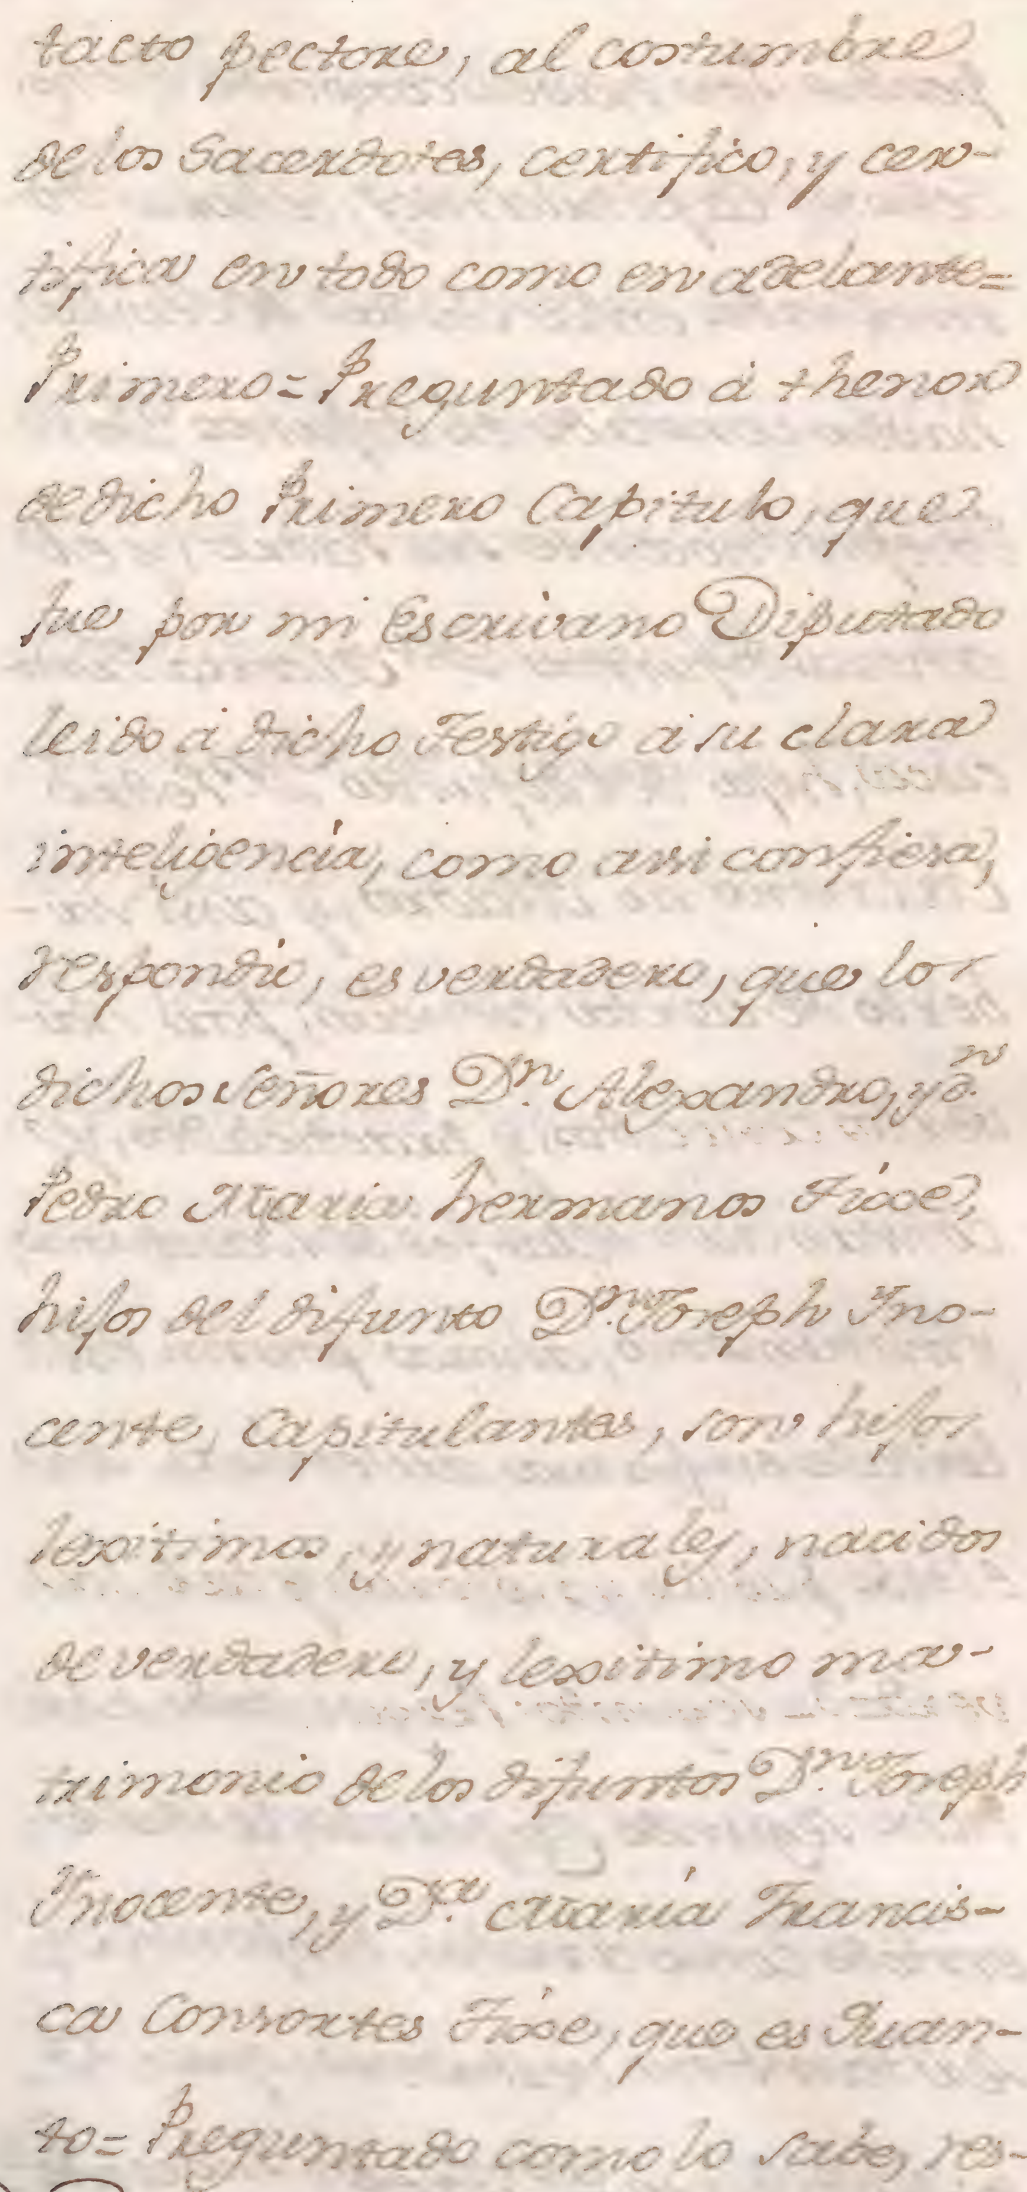 tacto pectore, al costumbre
de los Sacerdotes, certifico, y cer-
tifica en todo como en adelante=
Primero= Preguntado á thenor
de dicho Primero Capitulo, que
fue por mi Escrivano Diputado
leido á dicho Testigo á su clara
inteligencia, como assi confiesa,
respondió, es verdadero, que los
dichos Señores Dn. Alexandro, y dn.
Pedro Maria hermanos Fixe,
hijos del difunto Dn. Joseph Yno-
cente, Capitulantes, son hijos
lexitimos, y naturales, nacidos
de verdadero, y lexitimo ma-
trimonio de los difuntos Dn. Joseph
Ynocente, y Da. María Francis-
ca Consortes Fixe, que es quan-
to= Preguntado como lo sabe, res-